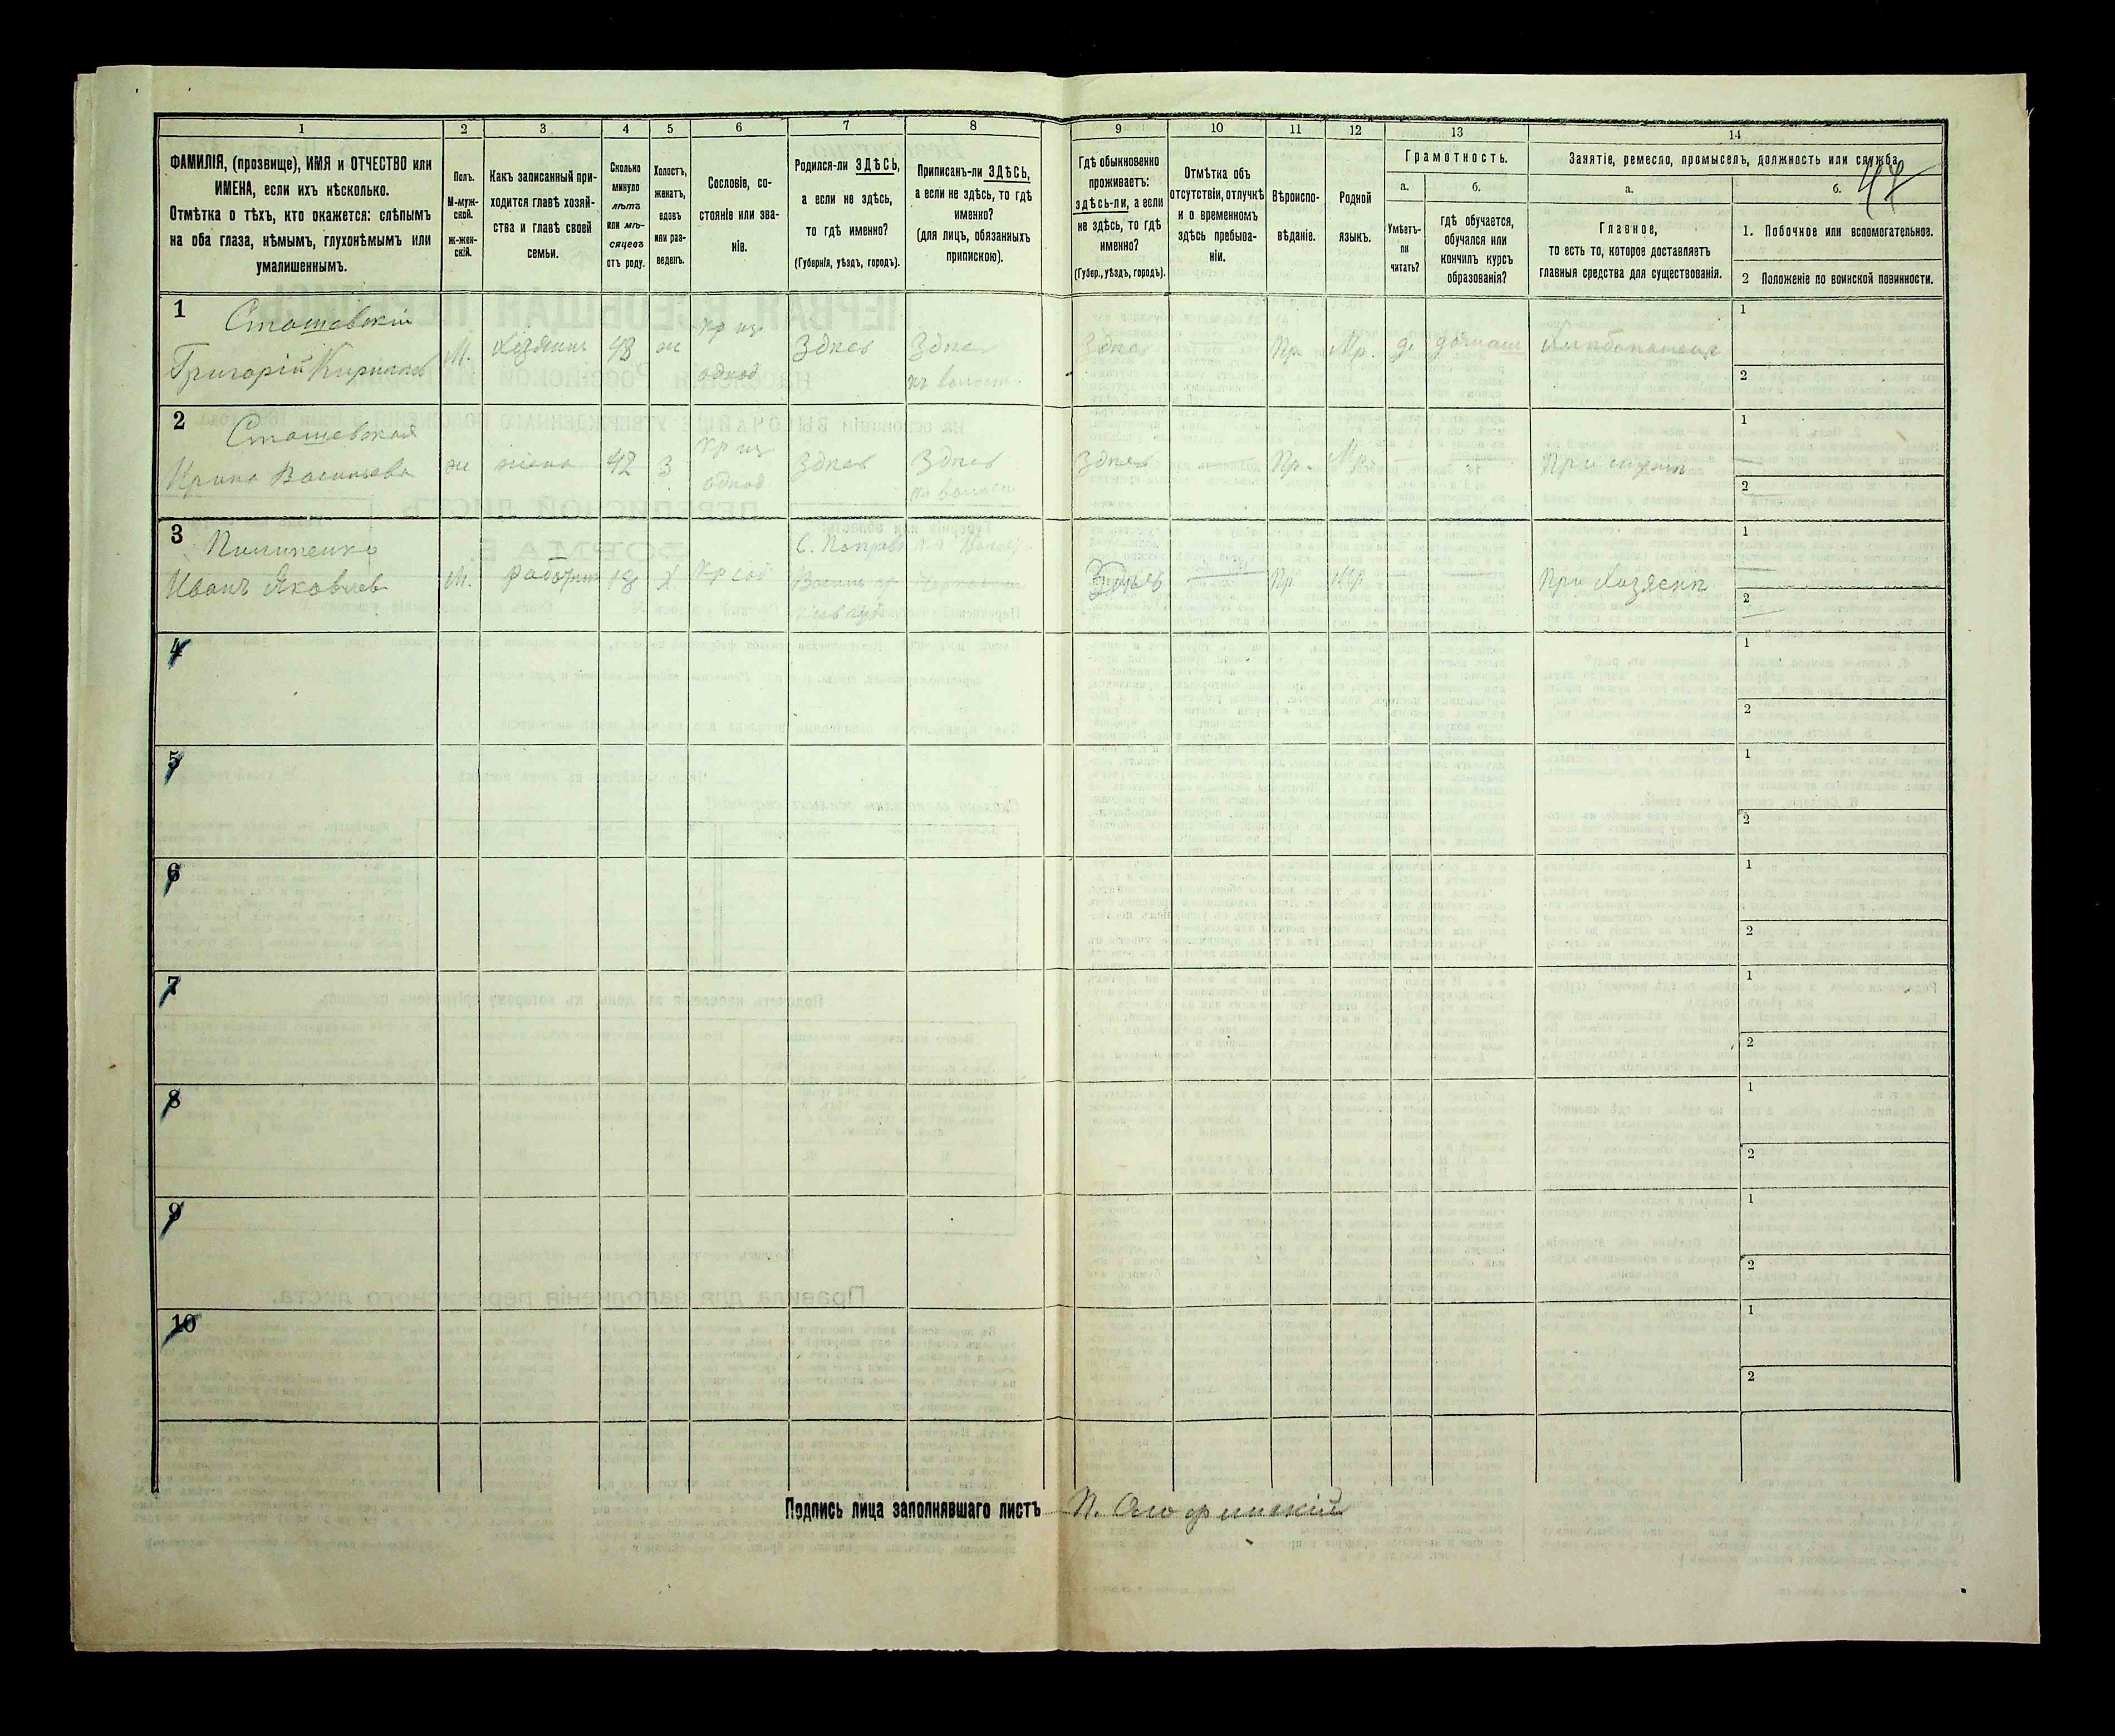 1
2
3
4
5
6
7
8
9
10
11
12
13
14
ФАМИЛІЯ, (прозвище), ИМЯ и ОТЧЕСТВО или
ИМЕНА, если ихъ нѣсколько.
Отмѣтка о тѣхъ, кто окажется: слѣпымъ
на оба глаза, нѣмымъ, глухонѣмымъ или
умалишеннымъ.
Полъ.
М-муж-
ской.
ж-жен-
скій.
Какъ записанный при-
ходится главѣ хозяй-
ства и главѣ своей
семьи.
Сколько
минуло
лѣтъ
или мѣ-
сяцевъ
отъ роду.
Холостъ,
женатъ,
вдовъ
или раз-
веденъ.
Сословіе, со-
стояніе или зва-
ніе.
Родился-ли ЗДѢСЬ,
а если не здѣсь,
то гдѣ именно?
(Губернія, уѣздъ, городъ).
Приписанъ-ли ЗДѢСЬ,
а если не здѣсь, то гдѣ
именно?
(для лицъ, обязанныхъ
припискою).
Гдѣ обыкновенно
проживаетъ:
здѣсь-ли, а если
не здѣсь, то гдѣ
именно?
(Губер., уѣздъ, городъ).
Отмѣтка объ
отсутствіи, отлучкѣ
и о временномъ
здѣсь пребыва-
ніи.
Вѣроиспо-
вѣданіе.
Родной
языкъ.
Грамотность.
а.
Умѣетъ-
ли
читать?
б.
гдѣ обучается,
обучался или
кончилъ курсъ
образованія?
Занятіе, ремесло, промыселъ, должность или служба.
а.
Главное,
то есть то, которое доставляетъ
главныя средства для существованія.
б.
1. Побочное или вспомогательное.
2 Положеніе по воинской повинности.
47
1
Сташевскій
Григорій Кирилловъ
М.
Хозяинъ
43
ж
Кр изъ
однод
Здѣсь
Здѣсь
въ волост.
Здѣсь
Пр.
Мр.
да
домаш
Хлѣбопашецъ
1
2
2
Сташевская
Ирина Васильева
ж
жена
42
З
Кр изъ
однод
Здѣсь
Здѣсь
въ волост
Здѣсь
—
Пр.
Мр.
—
При мужѣ
1
2
3
Пилипенко
Иванъ Яковлевъ
М.
работн
18
Х
Кр соб
Здѣсь
Пр
Мр
При Хозяинѣ
1
2
4
1
2
5
1
2
6
1
2
7
1
2
8
1
2
9
1
2
10
1
2
Подпись лица заполнявшаго листъ